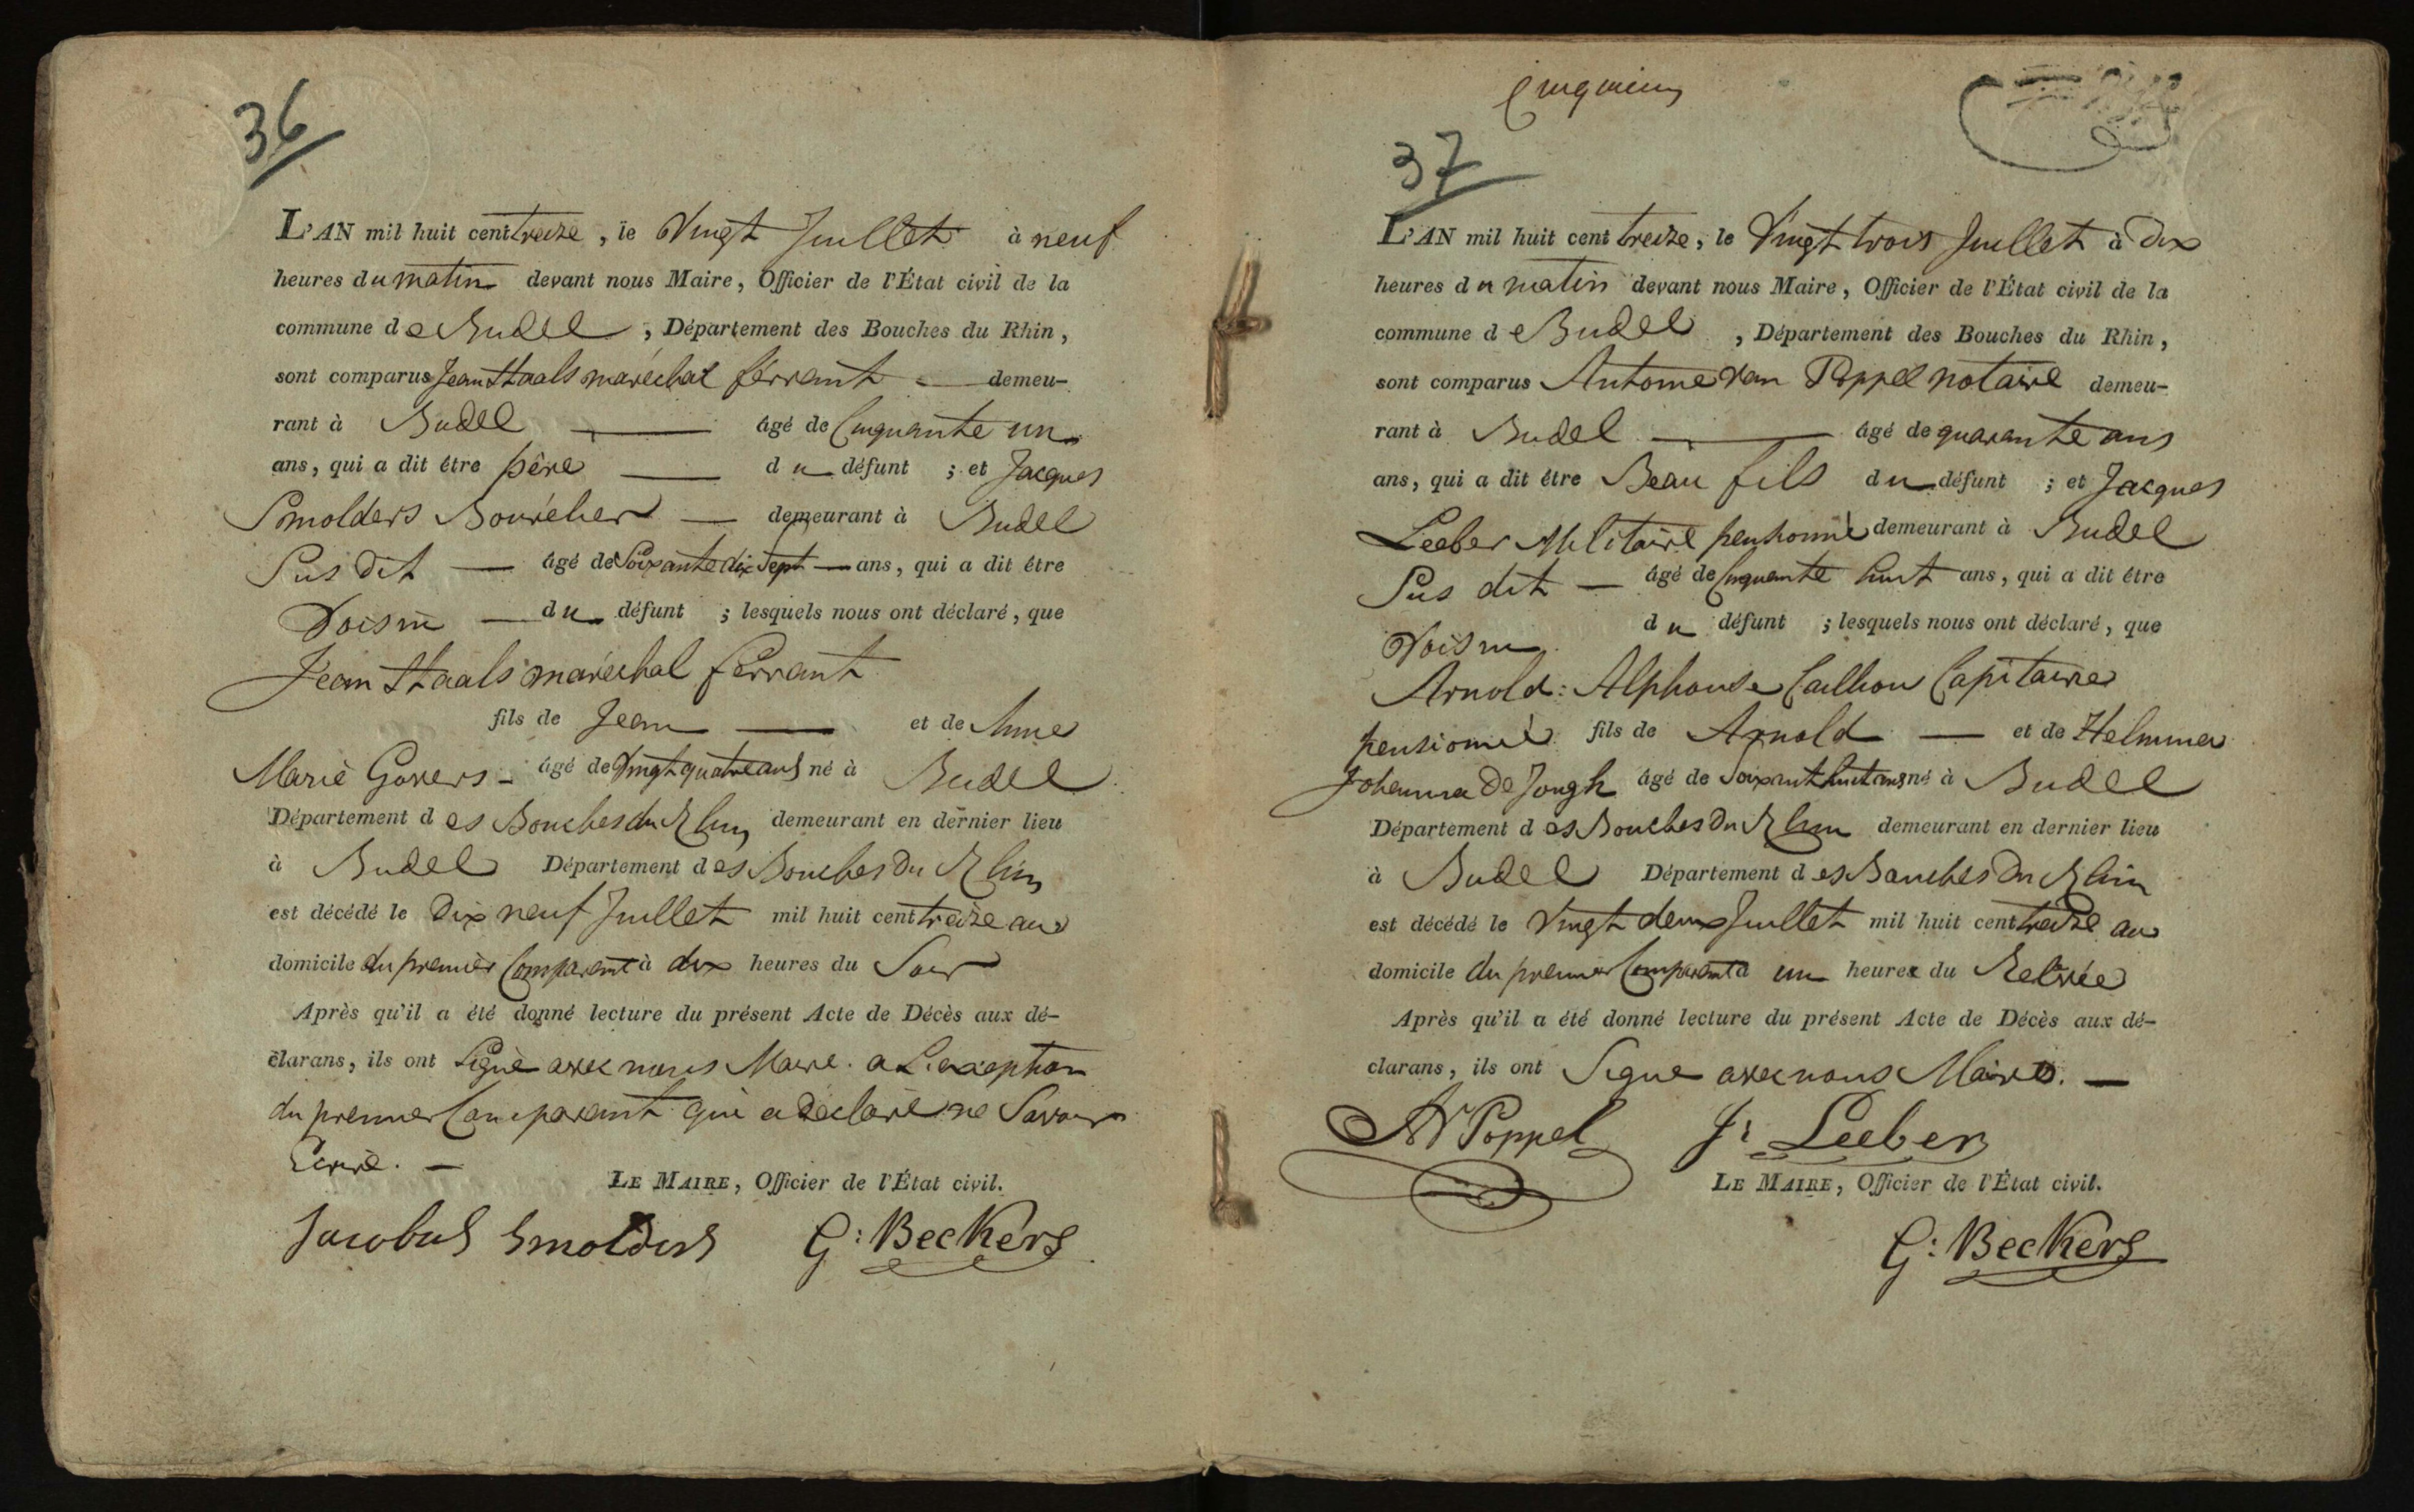 36
L'AN mil huit cent treize, le Vingt Juillet à neuf
heures du matin devant nous Maire, Officier de l'État civil de la
commune de Budel, Département des Bouches du Rhin,
sont comparus Jean Staals maréchal férrant — demeu-
rant à Budel — âgé de Cinquante un
ans, qui a dit être pére — du défunt ; et Jacques
Smolders Bourélier — demeurant à Budel
Sus dit — âgé de Soixante dix Sept — ans, qui a dit être
Voisin — du défunt ; lesquels nous ont déclaré, que
Jean Staals maréchal ferrant
fils de Jean — et de Anne
Marie Govers - âgé de Vingt quatre ans né à Budel
Département des Bouches du Rhin demeurant en dernier lieu
à Budel Département des Bouches Du Rhin
est décédé le Dix neuf Juillet mil huit cent treize au
domicile du premier Comparent à dix heures du Soir
Après qu'il a été donné lecture du présent Acte de Décès aux dé-
clarans, ils ont Signé avec nous Maire. a L'exception
du premier Comparant qui a déclaré ne Savoir
Ecrire. —
LE MAIRE, Officier de l'État civil.
Jacobus Smolders G: Beckers
37
L'AN mil huit cent treize, le Vingt trois Juillet à Dix
heures du matin devant nous Maire, Officier de l'État civil de la
commune de Budel, Département des Bouches du Rhin,
sont comparus Antoine Van Poppel notaire demeu-
rant à Budel — âgé de quarante ans
ans, qui a dit être Beau fils du défunt ; et Jacques
Leeber Militaire pensionné demeurant à Budel
Sus dit — âgé de Cinquante huit ans, qui a dit être
Voisin du défunt ; lesquels nous ont déclaré, que
Arnold: Alphonse Caillou Capitaine
pensionné fils de Arnold — et de Helmina
Johanna De Jongh âgé de Soixant huit ans né à Budel
Département des Bouches Du Rhin demeurant en dernier lieu
à Budel Département des Bouches Du Rhin
est décédé le Vingt deux Juillet mil huit cent treize au
domicile du premier Comparent à un heures du Relevée
Après qu'il a été donné lecture du présent Acte de Décès aux dé-
clarans, ils ont Signé avec nous Maire. —
AV Poppel Js Leeber
LE MAIRE, Officier de l'État civil.
G: Beckers